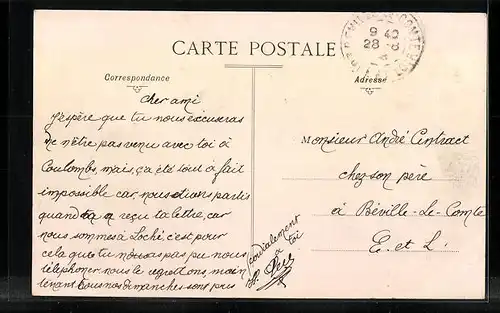 CARTE POSTALE
Correspondance
Adresse
9 40
28 -8
cher ami
J'espère que tu nous excuseras
de n'être pas venu avec toi à
Coulombs, mais, ça été tout à fait
impossible car nous étions partis
quand on a reçu ta lettre, car
nous sommes à Loché, c'est pour
cela que tu nous as pas pu nous
téléphoner nous le regrettons, main
tenant tous nos dimanches sont pris
cordialement
à toi
Monsieur André
chez son père
à Béville-Le-Comte
E. et L.